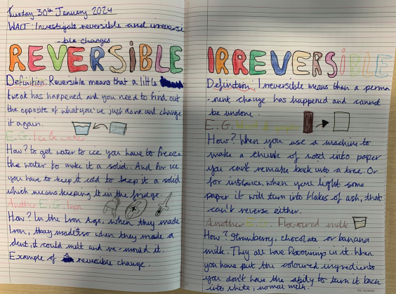 Tuesday 30th January 2024
WALT: Investigate reversible and irreverse
ble changes
REVERSIBLE
Definition: Reversible means that a little
tweak has happened and you need to find out
the opposite of what you've just done and change
it again.
E.G.
How? to get water to ice you have to freeze
the water to make it a solid. And for ice
you have to keep it cold to keep it a solid
which means keeping it in the fridge.
Another E.G.
How? In the Iron Age, when they made
Iron, they made when they made a
dent, it could melt and re-mould it.
Example of a reversible change.
IRREVERSIBLE
Definition: Irreversible means than a perma
nent change has happened and cannot
be undone.
E.G.
How? When you use a machine to
make a chunk of wood into paper
you can't remake back into a tree. Or
for instance, when you light some
paper it will turn into flakes of ash, that
can't reverse either.
Another Flavoured milk
How? Strawberry, chocolate or banana
milk. They all have flavourings in it. When
you have put the coloured ingredients
you don't have the ability to turn it back
into white, normal milk.